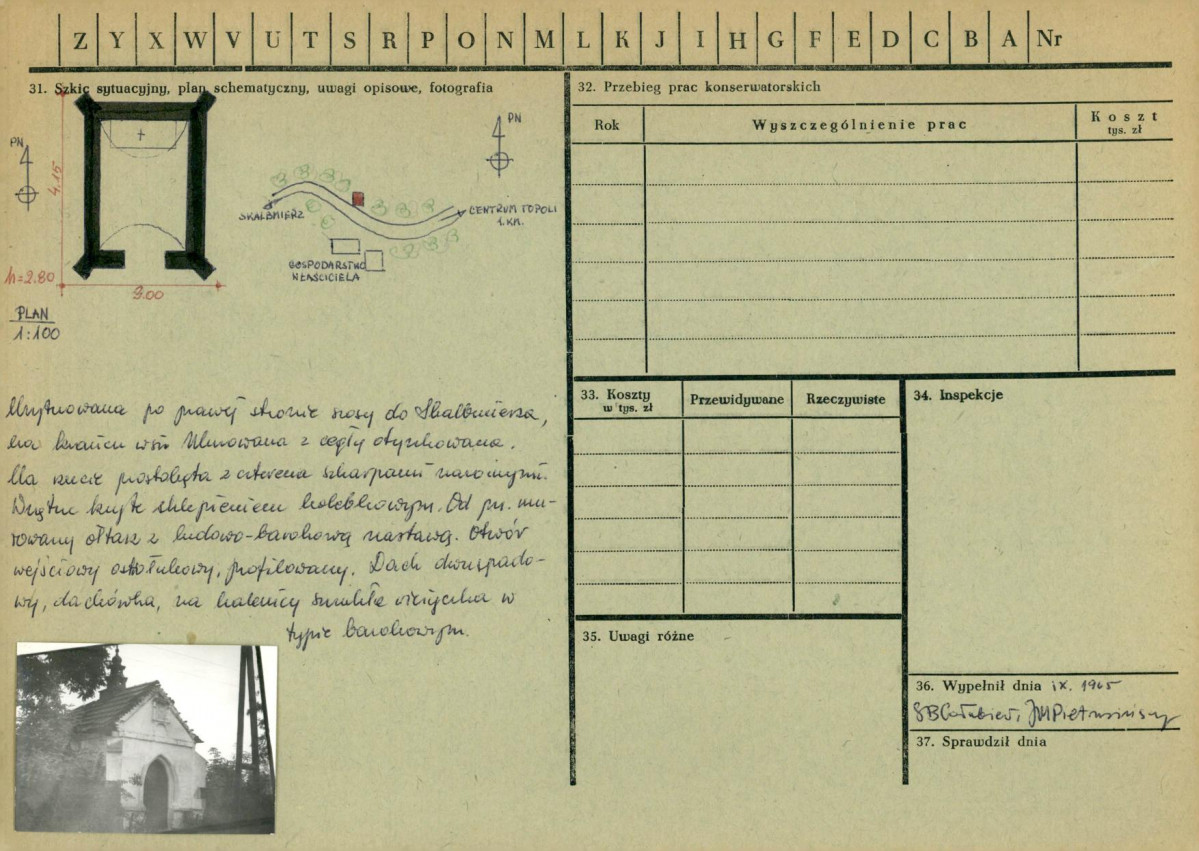 Z Y X W V U T S R P O N M L K J I H G F E D C B A Nr
31. Szkic sytuacyjny, plan schematyczny, uwagi opisowe, fotografia
PN
4.15
h=2.80
3.00
PLAN
1:100
PN
SKALBMIERZ
CENTRUM TOPOLI
1.KM.
GOSPODARSTWO
WŁAŚCICIELA
Usytuowana po prawej stronie szosy do Skalbmierza,
na krańcu wsi. Murowana z cegły otynkowana.
Na rzucie prostokąta z czterema szkarpami narożnymi.
Wnętrze kryte sklepieniem kolebkowym. Od pn. mu-
rowany ołtarz z ludowo-barokową nastawą. Otwór
wejściowy ostołukowy, profilowany. Dach dwuspado-
wy, dachówka, na kalenicy smukła wieżyczka w
typie barokowym.
32. Przebieg prac konserwatorskich
Rok
Wyszczególnienie prac
Koszt
tys. zł
33. Koszty
w tys. zł
Przewidywane
Rzeczywiste
34. Inspekcje
35. Uwagi różne
36. Wypełnił dnia IX. 1965
37. Sprawdził dnia